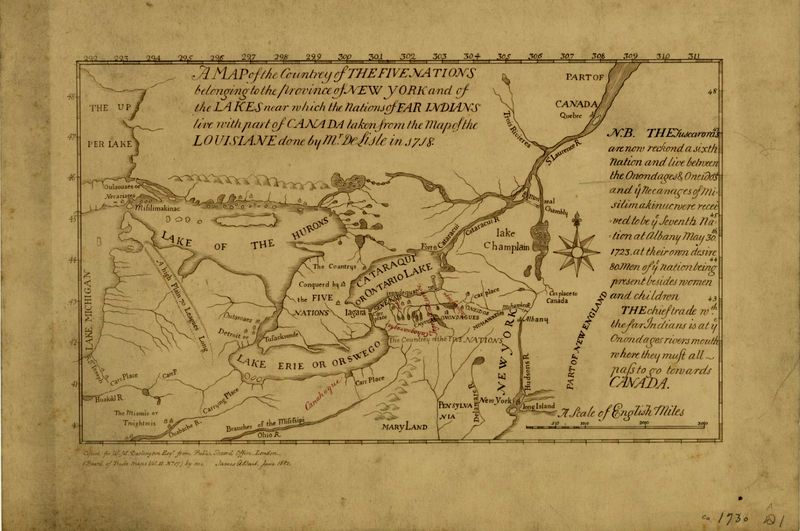 292 293 294 295 296 297 298 299 300 301 302 303 304 305 306 307 308 309 310 311
A MAP of the Countrey of THE FIVE NATIONS
belonging to the Province of NEW YORK and of
the LAKES near which the Nations of FAR INDIANS
live with part of CANADA taken from the Map of the
LOUISIANE done by Mr. De Lisle in 1718.
N.B. THE Tuscarora's
are now reckon'd a sixth
Nation and live between
the Onondages & Oneidos
and ye Necariages of Mi-
silimakinac were recei-
ved to be ye Seventh Na-
tion at Albany May 30th
1723. at their own desire
80 Men of ye nation being
present besides women
and children
THE chief trade wth
the far Indians is at ye
Onondages rivers mouth
where they must all
pass to go towards
CANADA.
A Scale of English Miles
48
47
46
45
44
43
42
41
THE UP
PER LAKE
PART OF
CANADA
Quebec
Trois Rivieres
S. Laurence R.
Montreal
Chambly
Outouases or
Necariages
Misilimakinac
LAKE OF THE HURONS
LAKE MICHIGAN
A high Plain 70 Leagues Long
The Countrys
Conquer'd by
the FIVE
NATIONS
CATARAQUI
OR ONTARIO LAKE
Fort Cataracui
Cataracui R.
lake
Champlain
Carr place to
Canada
Iagara
Outouases
Detroit or
Tussackrondie
LAKE ERIE OR OSWEGO
Carr place
ONEIDES
ONONDAGUES
The Country of the FIVE NATIONS
Albany
NEW YORK
Hudsons R.
PART OF NEW ENGLAND
New York
long Island
PENSYLVA
NIA
Delaware R.
MARYLAND
Carr Place
Canahogue
Carr Place
Carr P.
Carrying Place
The Miamis or
Twightwis
Ouabache R.
Branches of the Missisipi
Ohio R.
Copied for W. M. Darlington Esq. from Public Record Office London
(Board of Trade Maps Vol. II No 17) by me James A Blait June 1882.
ca 1730